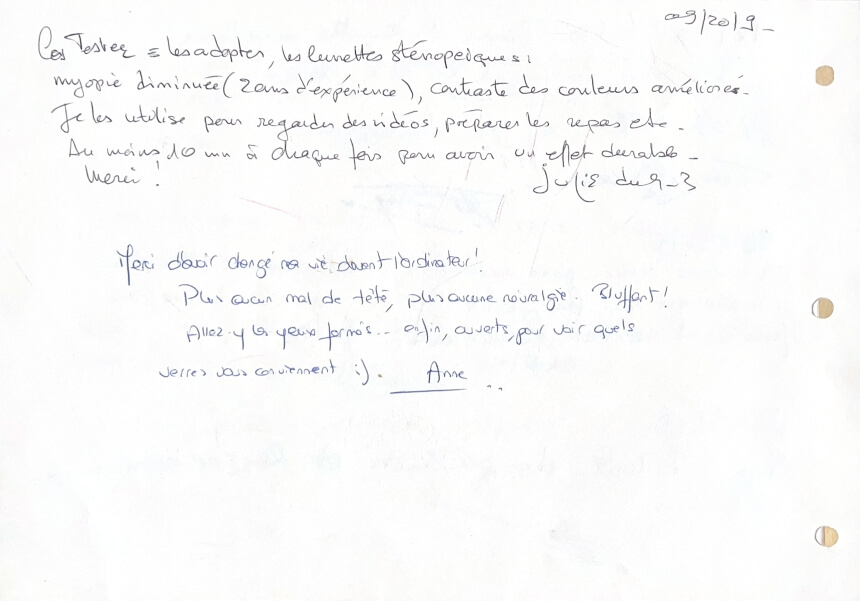 09/2019-
Les Tester = les adopter, les lunettes sténopeïques :
myopie diminuée (2 ans d'expérience), contraste des couleurs améliorés.
Je les utilise pour regarder des vidéos, préparer les repas etc.
Au moins 10 mn à chaque fois pour avoir un effet durable -
Merci !
Julie
Merci d'avoir changé ma vie devant l'ordinateur !
Plus aucun mal de tête, plus aucune névralgie. Bluffant !
Allez-y les yeux fermés... enfin, ouverts, pour voir quels
verres vous conviennent :).
Anne